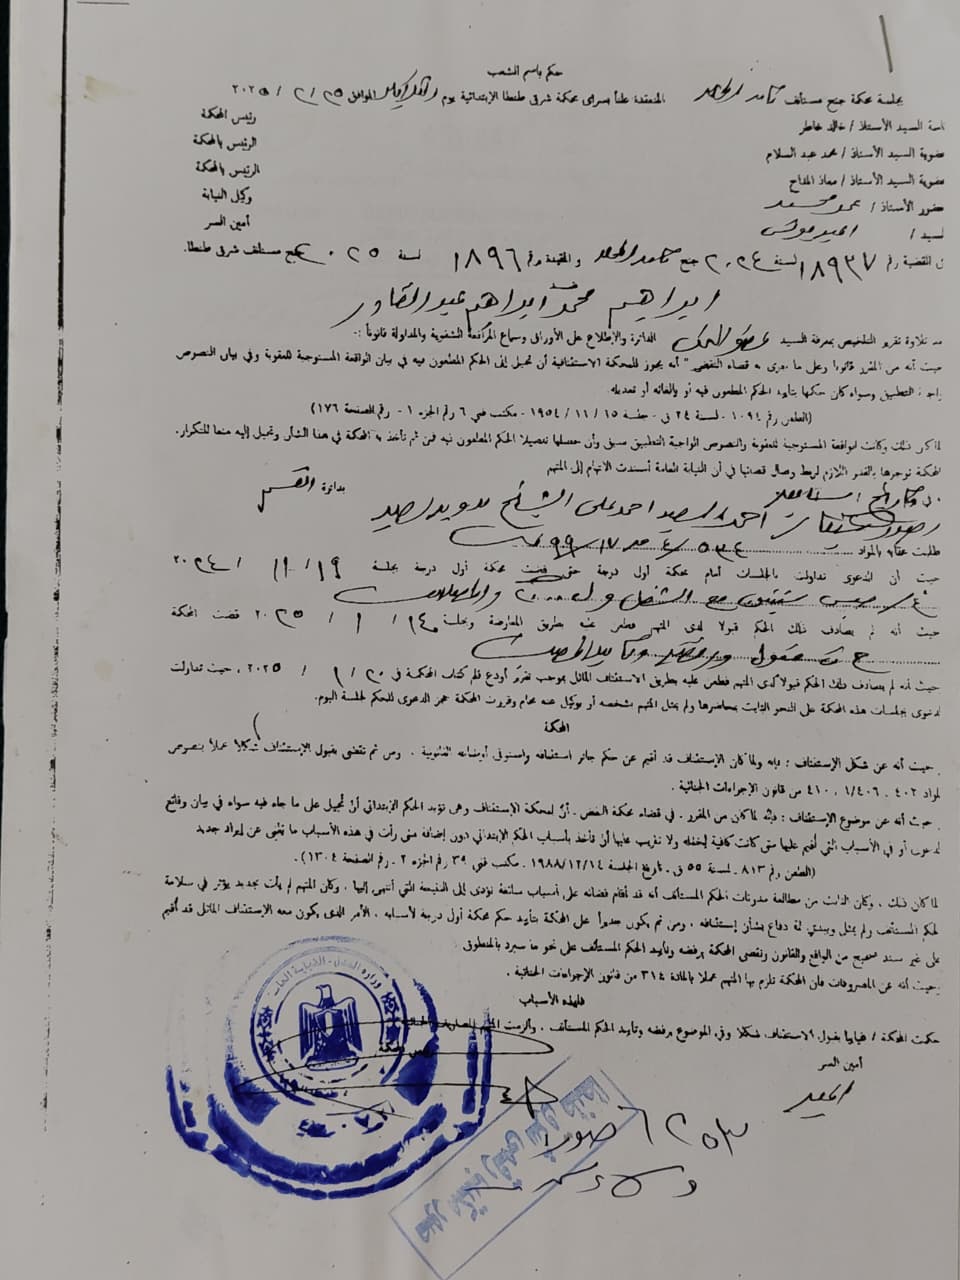 حكم باسم الشعب
بجلسة محكمة جنح مستأنف المنعقدة علناً بسراى محكمة شرق طنطا الإبتدائية يوم الموافق ٢٥ / ٢ / ٢٠٢٥
السيد الأستاذ / خالد خاطر رئيس المحكمة
عضوية السيد الأستاذ / محمد عبد السلام الرئيس بالمحكمة
عضوية السيد الأستاذ / معاذ المداح الرئيس بالمحكمة
حضور الأستاذ / محمد وكيل النيابة
السيد / أمين السر
القضية رقم ١٨٩٣٧ لسنة ٢٠٢٤ جنح والمقيدة برقم ١٨٩٦ لسنة ٢٠٢٥ جنح مستأنف شرق طنطا.
ابراهيم محمد ابراهيم عبد القادر
بعد تلاوة تقرير التلخيص بمعرفة السيد عضو الدائرة والإطلاع على الأوراق وسماع المرافعة الشفوية والمداولة قانوناً :-
حيث أنه من المقرر قانونا وعلى ما جرى به قضاء النقض " أنه يجوز للمحكمة الاستئنافية أن تحيل إلى الحكم المطعون فيه في بيان الواقعة المستوجبة للعقوبة وفي بيان النصوص
واجبة التطبيق وسواء كان حكمها بتأييد الحكم المطعون فيه أو بالغائه أو تعديله
(الطعن رقم ١٠٩٤ - لسنة ٢٤ ق - جلسة ١٥ / ١١ / ١٩٥٤ - مكتب فني ٦ رقم الجزء ١ - رقم الصفحة ١٧٦)
لما كان ذلك وكانت الواقعة المستوجبة للعقوبة والنصوص الواجبة التطبيق سبق وأن حصلها تفصيلا الحكم المطعون فيه فمن ثم تأخذ به المحكمة في هذا الشأن وتحيل إليه منعا للتكرار.
المحكمة توجزها بالقدر اللازم لربط وصال قضائها في أن النيابة العامة أسندت الاتهام إلى المتهم
بدائرة القسم
طلبت عقابه بالمواد
حيث أن الدعوى تداولت بالجلسات أمام محكمة أول درجة حتى قضت محكمة أول درجة بجلسة ١٩ / ١١ / ٢٠٢٤
حبس سنتين مع الشغل
حيث أنه لم يصادف ذلك الحكم قبولا لدى المتهم فطعن عليه بطريق المعارضة وبجلسة ١٤ / ١ / ٢٠٢٥ قضت المحكمة
حيث أنه لم يصادف ذلك الحكم قبولا لدى المتهم فطعن عليه بطريق الاستئناف الماثل بموجب تقرير أودع قلم كتاب المحكمة في ٢٠ / ١ / ٢٠٢٥ ، حيث تداولت
الدعوى بجلسات هذه المحكمة على النحو الثابت بمحاضرها ولم يمثل المتهم بشخصه أو بوكيل عنه محام وقررت المحكمة حجز الدعوى للحكم لجلسة اليوم.
المحكمة
حيث أنه عن شكل الإستئناف : فإنه ولما كان الإستئناف قد أقيم عن حكم جائز استئنافه واستوفى أوضاعه القانونية . ومن ثم تقضى بقبول الإستئناف شكلاً عملاً بنصوص
المواد ٤٠٢ ، ١/٤٠٦ ، ٤١٠ من قانون الإجراءات الجنائية .
وحيث أنه عن موضوع الإستئناف : فإنه لما كان من المقرر . في قضاء محكمة النقض . أنّ لمحكمة الإستئناف وهى تؤيد الحكم الإبتدائى أنّ تُحيل على ما جاء فيه سواء في بيان وقائع
الدعوى أو في الأسباب التي أقيم عليها متى كانت كافية لحمله ولا تثريب عليها أنّ تأخذ بأسباب الحكم الإبتدائي دون إضافة متى رأت في هذه الأسباب ما يُغنى عن إيراد جديد
(الطعن رقم ٨١٣ . لسنة ٥٥ ق . تاريخ الجلسة ١٩٨٨/١٢/١٤ . مكتب فني ٣٩ رقم الجزء ٢ . رقم الصفحة ١٣٠٤) .
لما كان ذلك . وكان الثابت من مطالعة مدونات الحكم المستأنف أنه قد أقام قضائه على أسباب سائغة تؤدى إلى النتيجة التي أنتهى إليها . وكان المتهم لم يأت بجديد يؤثر في سلامة
الحكم المستأنف ولم يمثل ويبدي ثمة دفاع بشأن إستئنافه . ومن ثم يكون جديراً على المحكمة بتأييد حكم محكمة أول درجة لأسبابه . الأمر الذى يكون معه الإستئناف الماثل قد أُقيم
على غير سند صحيح من الواقع والقانون وتقضى المحكمة برفضه وتأييد الحكم المستأنف على نحو ما سيرد بالمنطوق .
وحيث أنه عن المصروفات فأن المحكمة تلزم بها المتهم عملا بالمادة ٣١٤ من قانون الإجراءات الجنائية .
فلهذه الأسباب
حكمت المحكمة / غيابيا بقبول الاستئناف شكلا وفي الموضوع برفضه وتأييد الحكم المستأنف ، وألزمت المتهم المصاريف الجنائية
أمين السر رئيس المحكمة
وزارة العدل - النيابة العامة